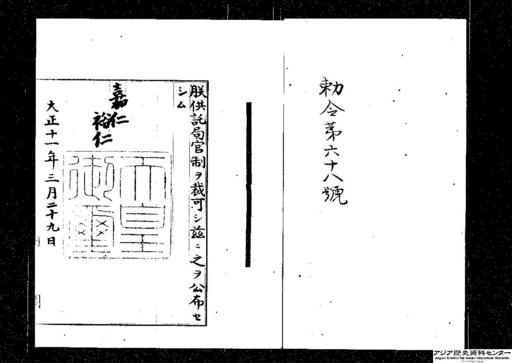 勅令第六十八號
朕供託局官制ヲ裁可シ茲ニ之ヲ公布セ
シム
嘉仁
裕仁
天皇
御璽
大正十一年三月二十九日
アジア歴史資料センター
Japan Center for Asian Historical Records